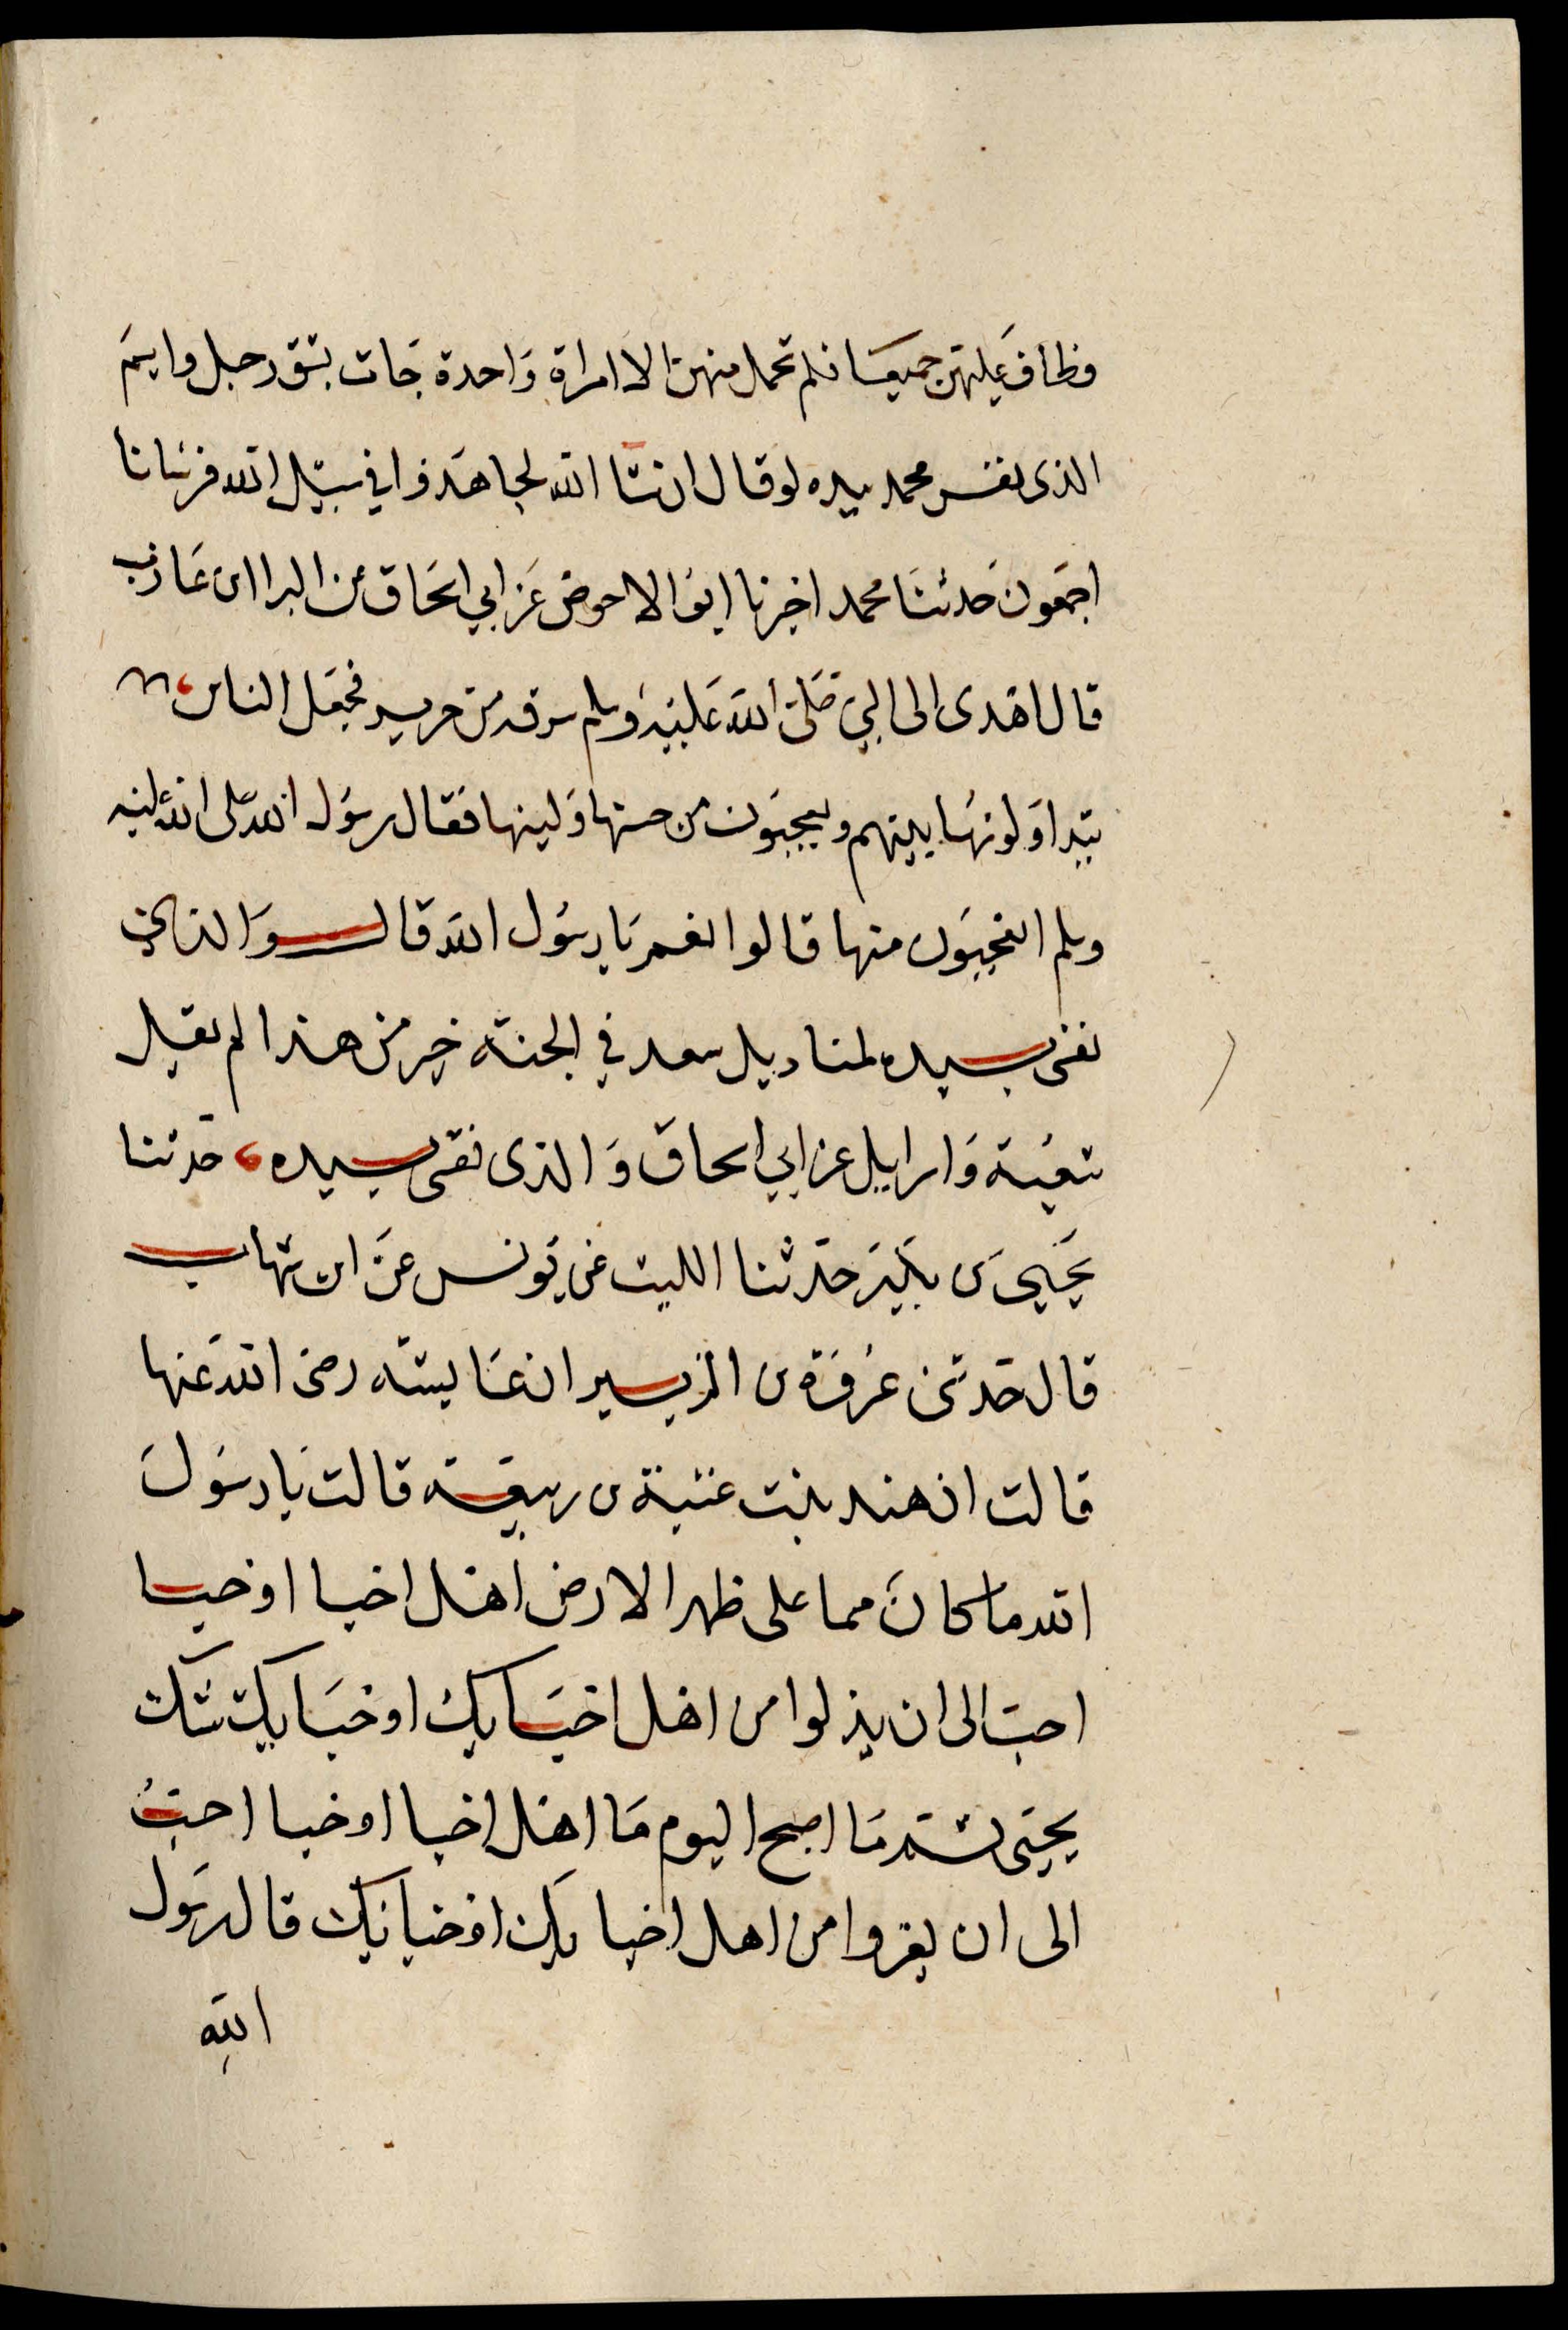 فطاف عليهن جميعا فلم تحمل منهن الا امراة واحدة جات بشق رجل وايم
الذى نفس محمد بيده لو قال ان شا الله لجاهدوا في سبيل الله فرسانا
اجمعون حدثنا محمد اخبرنا ابو الاحوص عن ابي اسحاق عن البرا ابن عازب
قال اهدى الى النبي صلى الله عليه وسلم سرقه من حرير فجعل الناس
يتداولونها بينهم ويعجبون من حسنها ولينها فقال رسول الله صلى الله عليه
وسلم اتعجبون منها قالوا نعم يا رسول الله قال والذي
نفسى بيده لمناديل سعد في الجنة خير من هذا لم يقل
شعبة واسرايل عن ابي اسحاق والذى نفسى بيده، حدثنا
يحيى بن بكير حدثنا الليث عن يونس عن ابن شهاب
قال حدثنى عروة بن الزبير ان عايشه رضى الله عنها
قالت ان هند بنت عتبة بن ربيعة قالت يا رسول
الله ما كان مما على ظهر الارض اهل اخبا او خبا
احب الى ان يذلوا من اهل اخبايك او خبايك شك
يحيى ثم ما اصبح اليوم ما اهل اخبا او خبا احب
الى ان يعزوا من اهل اخبايك او خبايك قال رسول
الله